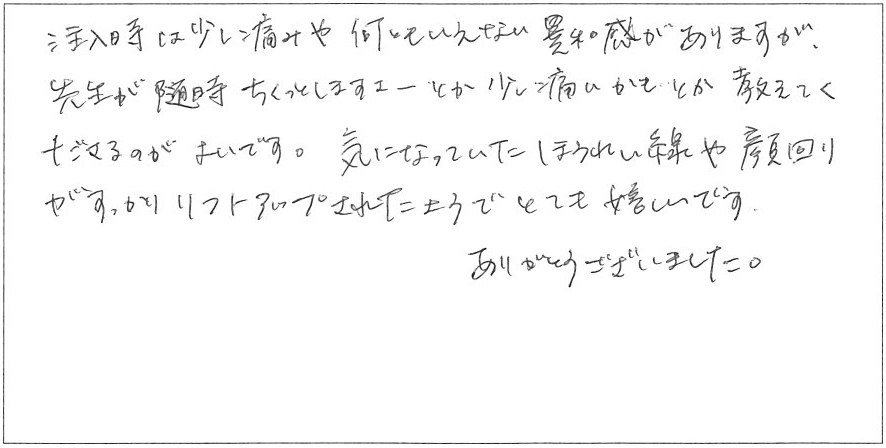 注入時は少し痛みや何ともいえない異和感がありますが、
先生が随時ちくっとしますヨーとか少し痛いかもとか教えてく
ださるのがよいです。気になっていたほうれい線や顔回り
がすっかりリフトアップされたようでとても嬉しいです。
ありがとうございました。